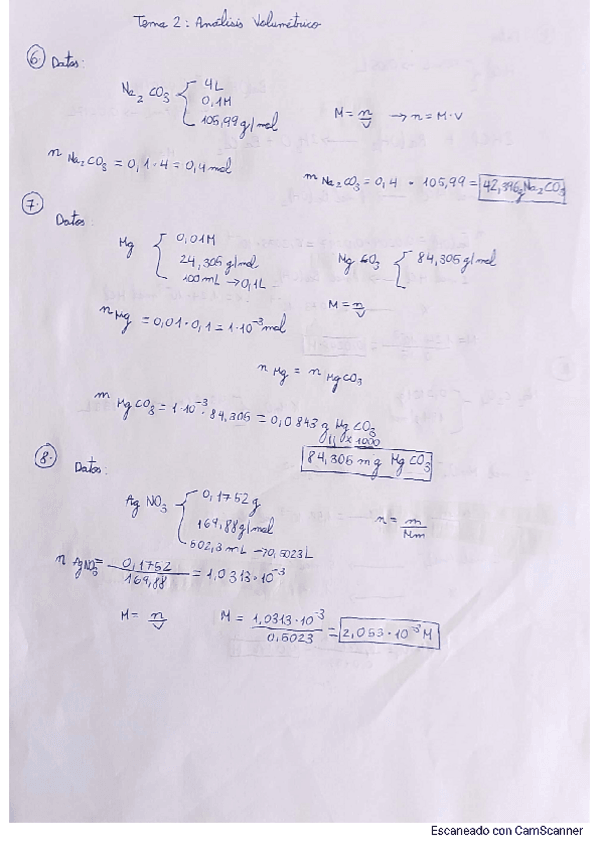 Tema 2: Análisis Volumétrico
6. Datos:
Na2CO3 { 4L
0,1M
105,99 g/mol
M = n/V → n = M·V
n Na2CO3 = 0,1 · 4 = 0,4 mol
m Na2CO3 = 0,4 · 105,99 = 42,396g Na2CO3
7.
Datos:
Mg { 0,01M
24,305 g/mol
100 mL → 0,1L
Mg CO3 { 84,305 g/mol
M = n/V
n Mg = 0,01 · 0,1 = 1·10⁻³ mol
n Mg = n MgCO3
m MgCO3 = 1·10⁻³ · 84,305 = 0,0843 g Mg CO3
x 1000
84,305 mg Mg CO3
8.
Datos:
Ag NO3 { 0,1752 g
169,88 g/mol
502,3 mL → 0,5023L
n = m/Mm
n AgNO3 = 0,1752/169,88 = 1,0313·10⁻³
M = n/V
M = 1,0313·10⁻³/0,5023 = 2,053·10⁻³ M
Escaneado con CamScanner